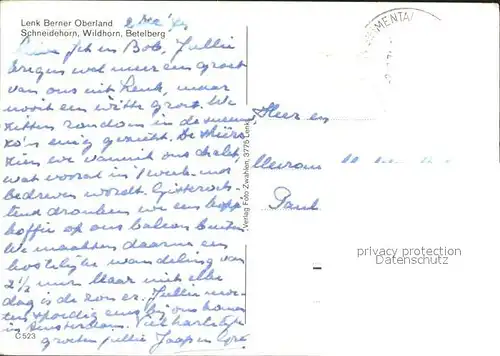 Lenk Berner Oberland
Schneidehorn, Wildhorn, Betelberg
2 Dec
en Bob. Jullie
kregen wel meer een groet
van ons uit Lenk, maar
nooit een witte groet. We
zitten rondom in de sneeuw
zo'n enig gezicht. De
zien we vanuit ons chalet,
wat vooral in 1 week-end
bedreven wordt. Gisteroch-
tend dronken we een kopje
koffie op ons balcon buiten
We maakten daarna een
kostelijke wandeling van
2½ uur. Maar niet elke
dag is de zon er. Jullie moe-
ten spoedig eens bij ons komen
in Amsterdam. Veel hartelijke
groeten jullie Jaap en Coré
C 523
Verlag Foto Zwahlen, 3775 Lenk
SIMMENTAL
Heer en
Mevrouw
Paul
privacy protection
Datenschutz